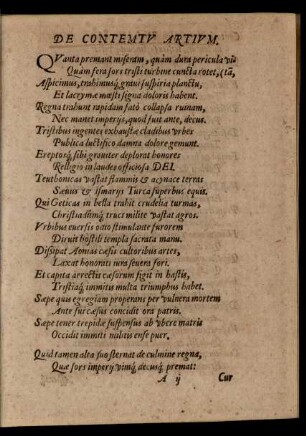 DE CONTEMTV ARTIVM.
QVanta premant miseram, quàm dura pericula vi-
Quàm fera sors tristi turbine cuncta rotet, (tā,
Aspicimus, trahimusq́; graui suspiria planctu,
Et lacrymæ mæsti signa doloris habent.
Regna trahunt rapidam fato collapsa ruinam,
Nec manet imperijs, quod fuit ante, decus.
Tristibus ingentes exhaustæ cladibus vrbes
Publica luctifico damna dolore gemunt.
Ereptosq́; sibi grauiter deplorat honores
Relligio in laudes officiosa DEI.
Teuthonicas vastat flammis & acinace terras
Sæuus & Ismarijs Turca superbus equis.
Qui Geticas in bella trahit crudelia turmas,
Christiadûmq́; truci milite vastat agros.
Vrbibus euersis odio stimulante furorem
Diruit hostili templa sacrata manu.
Dissipat Aonias cæsis cultoribus artes,
Laxat honoratis iura seuera fori.
Et capita arrectis cæsorum figit in hastis,
Tristiaq́; immitis multa triumphus habet.
Sæpe quis egregiam properans per vulnera mortem
Ante sui casus concidit ora patris.
Sæpe tener trepidæ suspensus ab vbere matris
Occidit immiti nudatus ense puer.
Quid tamen alta suo sternat de culmine regna,
Quæ sors imperij vimq́; decusq́; premat:
A ij
Cur